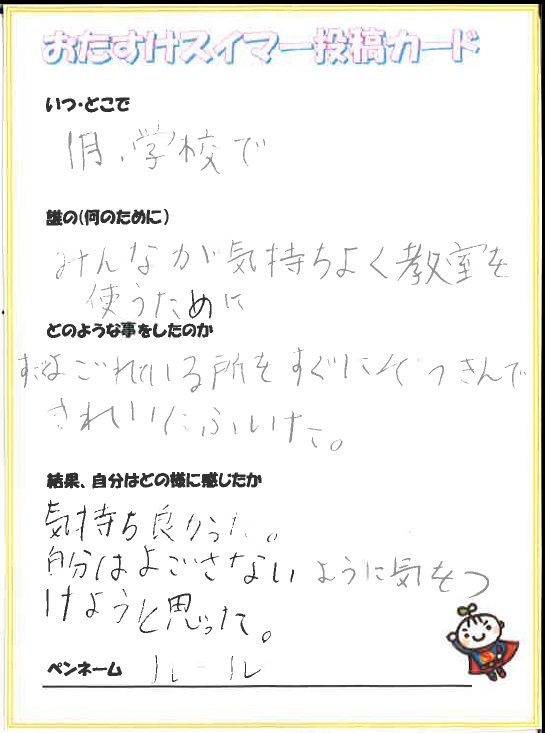 おたすけスイマー投稿カード
いつ・どこで
1月、学校で
誰の(何のために)
みんなが気持ちよく教室を
使うために
どのような事をしたのか
よごれている所をすぐに ぞうきんで
きれいにふいた。
結果、自分はどの様に感じたか
気持ち良かった。
自分はよごさないように気をつ
けようと思った。
ペンネーム ルール